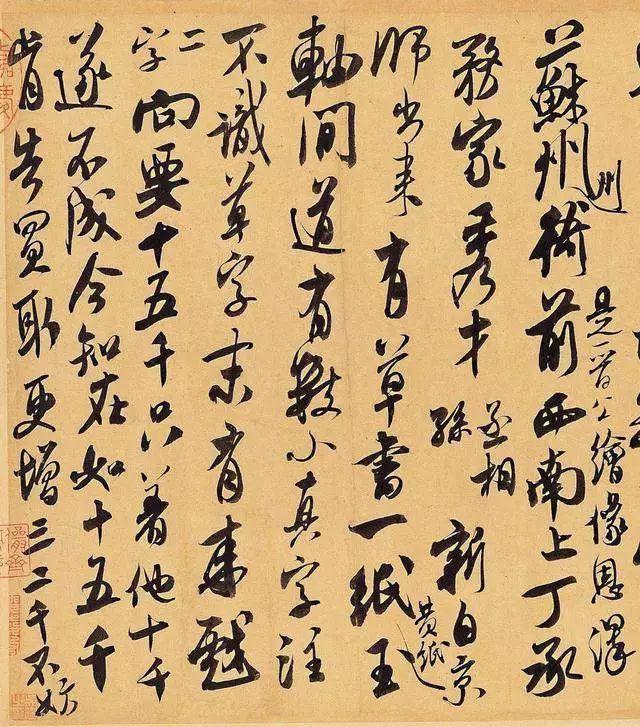 州
是晉公繪像恩澤
蘇州衙前西南上丁承
務家秀才丞相孫新自京
黃紙
師出來有草書一紙玉
軸間道有數小真字注
不識草字末有來戲
二字向要十五千只著他十千
遂不成今知在如十五千
肯告買取更增三二千不妨